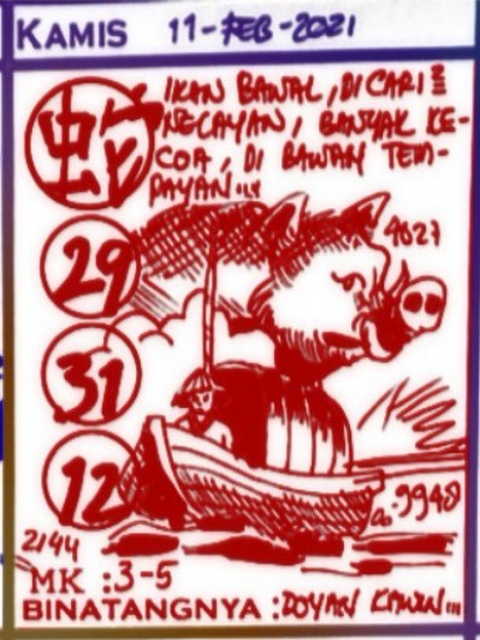 KAMIS 11-FEB-2021
蛇
IKAN BAWAL, DI CARI²
NELAYAN, BANYAK KE-
COA, DI BAWAH TEM-
PAYAN...
29
4027
31
12
9948
2144
MK : 3-5
BINATANGNYA : DOYAN KAWIN...